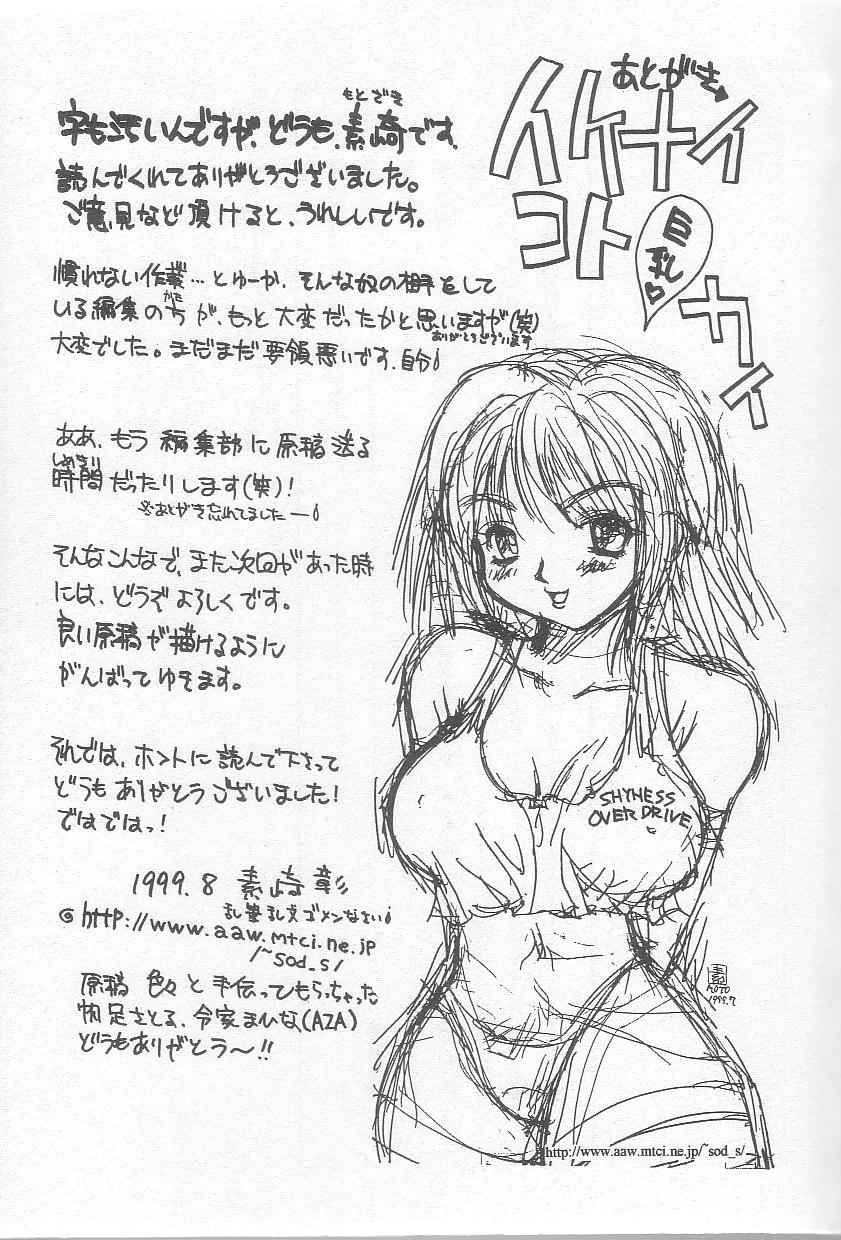 あとがき
イケナイ
コト
巨乳
カイ
もとざき
字も汚いんですが、どうも、素崎です。
読んでくれてありがとうございました。
ご意見など頂けると、うれしいです。
慣れない作業…とゆーか、そんな奴の相手をして
いる編集の方が、もっと大変だったかと思いますが(笑)
かた
ありがとうございます
大変でした。まだまだ要領悪いです、自分!
ああ、もう編集部に原稿送る
しめきり
時間だったりします(笑)!
※あとがき忘れてましたー!
そんなこんなで、また次回があった時
には、どうぞよろしくです。
良い原稿が描けるように
がんばってゆきます。
それでは、ホントに読んで下さって
どうもありがとうございました!
ではではっ!
1999.8 素崎 彰
乱筆乱文ゴメンなさい!
http://www.aaw.mtci.ne.jp
/~sod_s/
原稿 色々と手伝ってもらっちゃった
さとる、令家まひな(AZA)
どうもありがとう〜!!
SHYNESS
OVER DRIVE
素
MOTO
1999.7
http://www.aaw.mtci.ne.jp/~sod_s/